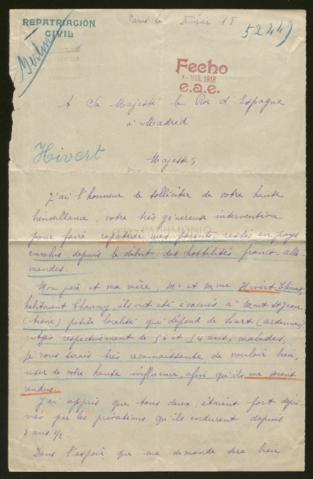 REPATRIACIÓN
CIVIL
Berlin
52247
Paris le Février 18
Fecho
1918
e.a.e.
A Sa Majesté le Roi d'Espagne
à Madrid
Hivert
Majesté,
J'ai l'honneur de solliciter de votre haute
bienveillance, votre très généreuse intervention
pour faire rapatrier mes parents restés en pays
envahis depuis le début des hostilités franco-alle
mandes.
Mon père et ma mère, Mr et Mme Hivert
habitant Chauny, ils ont été évacués à Mont St Jean
(Aisne) petite localité qui dépend de Liart (Ardennes)
Agés respectivement de et 54 ans, malades,
je vous serais très reconnaissante de vouloir bien
user de votre haute influence, afin qu'ils me soient
rendus.
J'ai appris que tous deux étaient fort dépri
més par les privations qu'ils endurent depuis
3 ans 1/2
Dans l'espoir que ma demande sera bien